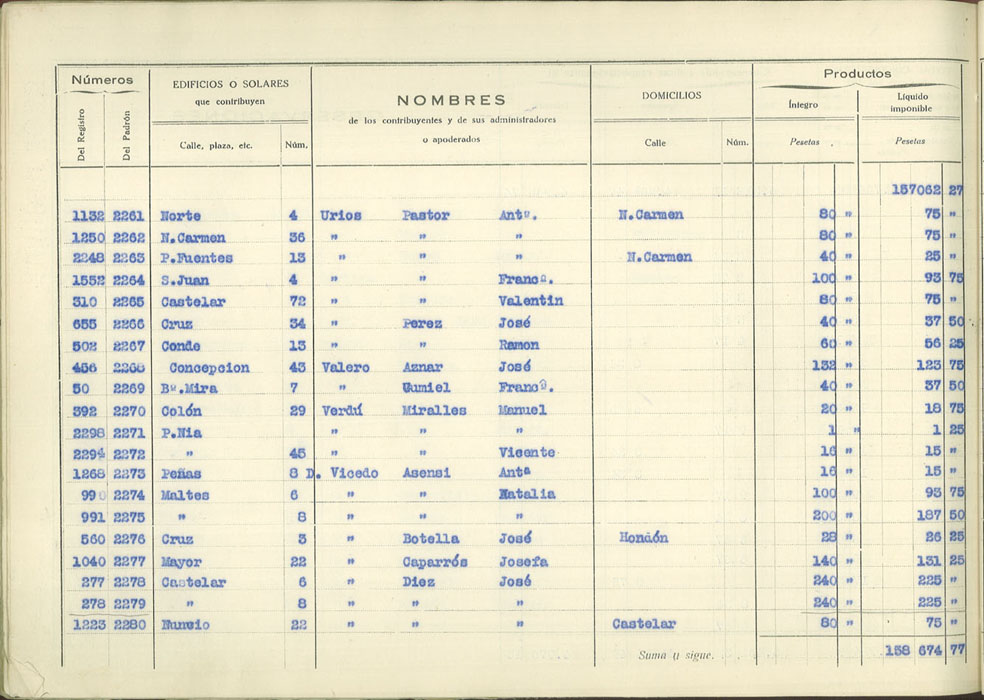 Números EDIFICIOS O SOLARES que contribuyen NOMBRES de los contribuyentes y de sus administradores o apoderados DOMICILIOS Productos
Del Registro Del Padrón Calle, plaza, etc. Núm. Calle Núm. Íntegro Líquido imponible
Pesetas . Pesetas
157062 27
1132 2261 Norte 4 Urios Pastor Antº. N.Carmen 80 " 75 "
1250 2262 N.Carmen 36 " " " 80 " 75 "
2248 2263 P.Fuentes 13 " " " N.Carmen 40 " 25 "
1552 2264 S.Juan 4 " " Francº. 100 " 93 75
310 2265 Castelar 72 " " Valentin 80 " 75 "
655 2266 Cruz 34 " Perez José 40 " 37 50
502 2267 Conde 13 " " Ramon 60 " 56 25
456 2268 Concepcion 43 Valero Aznar José 132 " 123 75
50 2269 Bº.Mira 7 " Gumiel Francº. 40 " 37 50
392 2270 Colón 29 Verdú Miralles Manuel 20 " 18 75
2298 2271 P.Nia " " " 1 " 1 25
2294 2272 " 45 " " Vicente 16 " 15 "
1268 2273 Peñas 8 D. Vicedo Asensi Antª 16 " 15 "
990 2274 Maltes 6 " " Natalia 100 " 93 75
991 2275 " 8 " " " 200 " 187 50
560 2276 Cruz 3 " Botella José Hondón 28 " 26 25
1040 2277 Mayor 22 " Caparrós Josefa 140 " 131 25
277 2278 Castelar 6 " Diez José 240 " 225 "
278 2279 " 8 " " " 240 " 225 "
1223 2280 Nuncio 22 " " " Castelar 80 " 75 "
Suma y sigue. 158 674 77